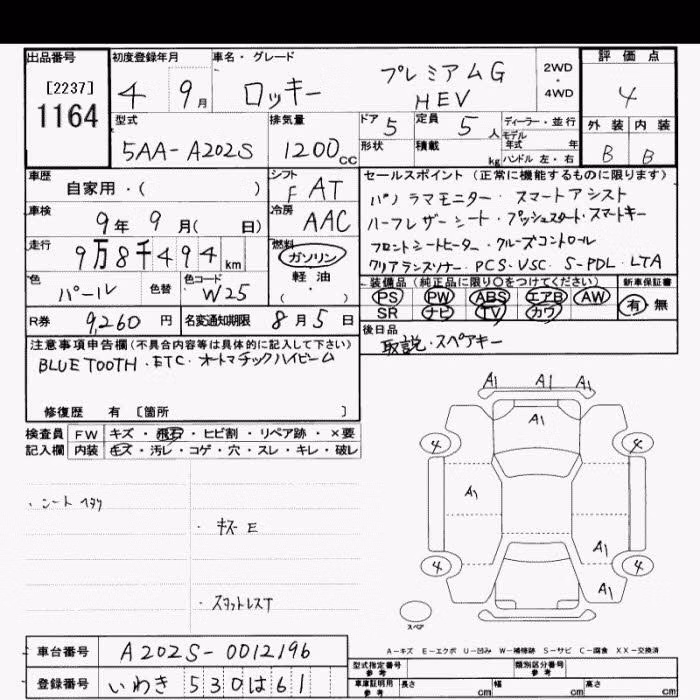 出品番号 初度登録年月 車名・グレード 評価点
[2237]
1164
4 9月 ロッキー プレミアムG HEV
2WD・4WD
4
外装 内装
B B
型式 排気量 ドア 5 定員 5人 ディーラー・並行
モデル年式 年
5AA-A202S 1200cc 形状 積載 kg ハンドル 左・右
車歴 自家用・( ) シフト F AT
車検 9年 9月( 日) 冷房 AAC
走行 9万8千494km 燃料 ガソリン
軽油
( )
色 パール 色替 色コード W25
R券 9,260円 名変通知期限 8月5日
セールスポイント(正常に機能するものに限ります)
パノラマモニター・スマートアシスト
ハーフレザーシート・プッシュスタート・スマートキー
フロントシートヒーター・クルーズコントロール
クリアランスソナー・PCS・VSC・S-PDL・LTA
装備品(純正品に限り○をつけてください) 新車保証書
PS PW ABS エアB AW 有・無
SR ナビ TV カワ
後日品
取説・スペアキー
注意事項申告欄(不具合内容等は具体的に記入して下さい)
BLUETOOTH・ETC・オートマチックハイビーム
修復歴 有 [箇所 ]
検査員 FW キズ・飛石・ヒビ割・リペア跡・×要
記入欄 内装 キズ・汚レ・コゲ・穴・スレ・キレ・破レ
・シートヘタリ
・キズ-E
・スタットレスT
A1 A1 A1
A1
4 4
A1
A1
4 4
A1
スペア
A-キズ E-エクボ U-凹み W-補修跡 S-サビ C-腐食 XX-交換済
車台番号 A202S-0012196
登録番号 いわき530は61
型式指定番号 参考 類別区分番号 参考
車庫証明用 参考 長さ cm 幅 cm 高さ cm